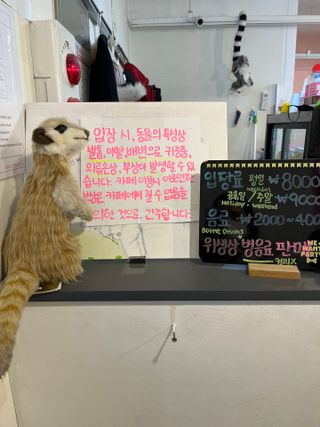 입장 시, 동물의 특성상
발톱, 이빨, 배변으로 귀중품,
의류손상, 부상이 발생할 수 있
습니다. 카페 이용시 이로인한
방은 카페에서 질 수 없음을
의한 것으로, 간주합니다.
입장료 평일 ₩8000
공휴일/주말 ₩9000
Holiday, weekend
음료 ₩2000~4000
Bottle Drinks
위생상 병음료 판매
WE
WANT
PARTY